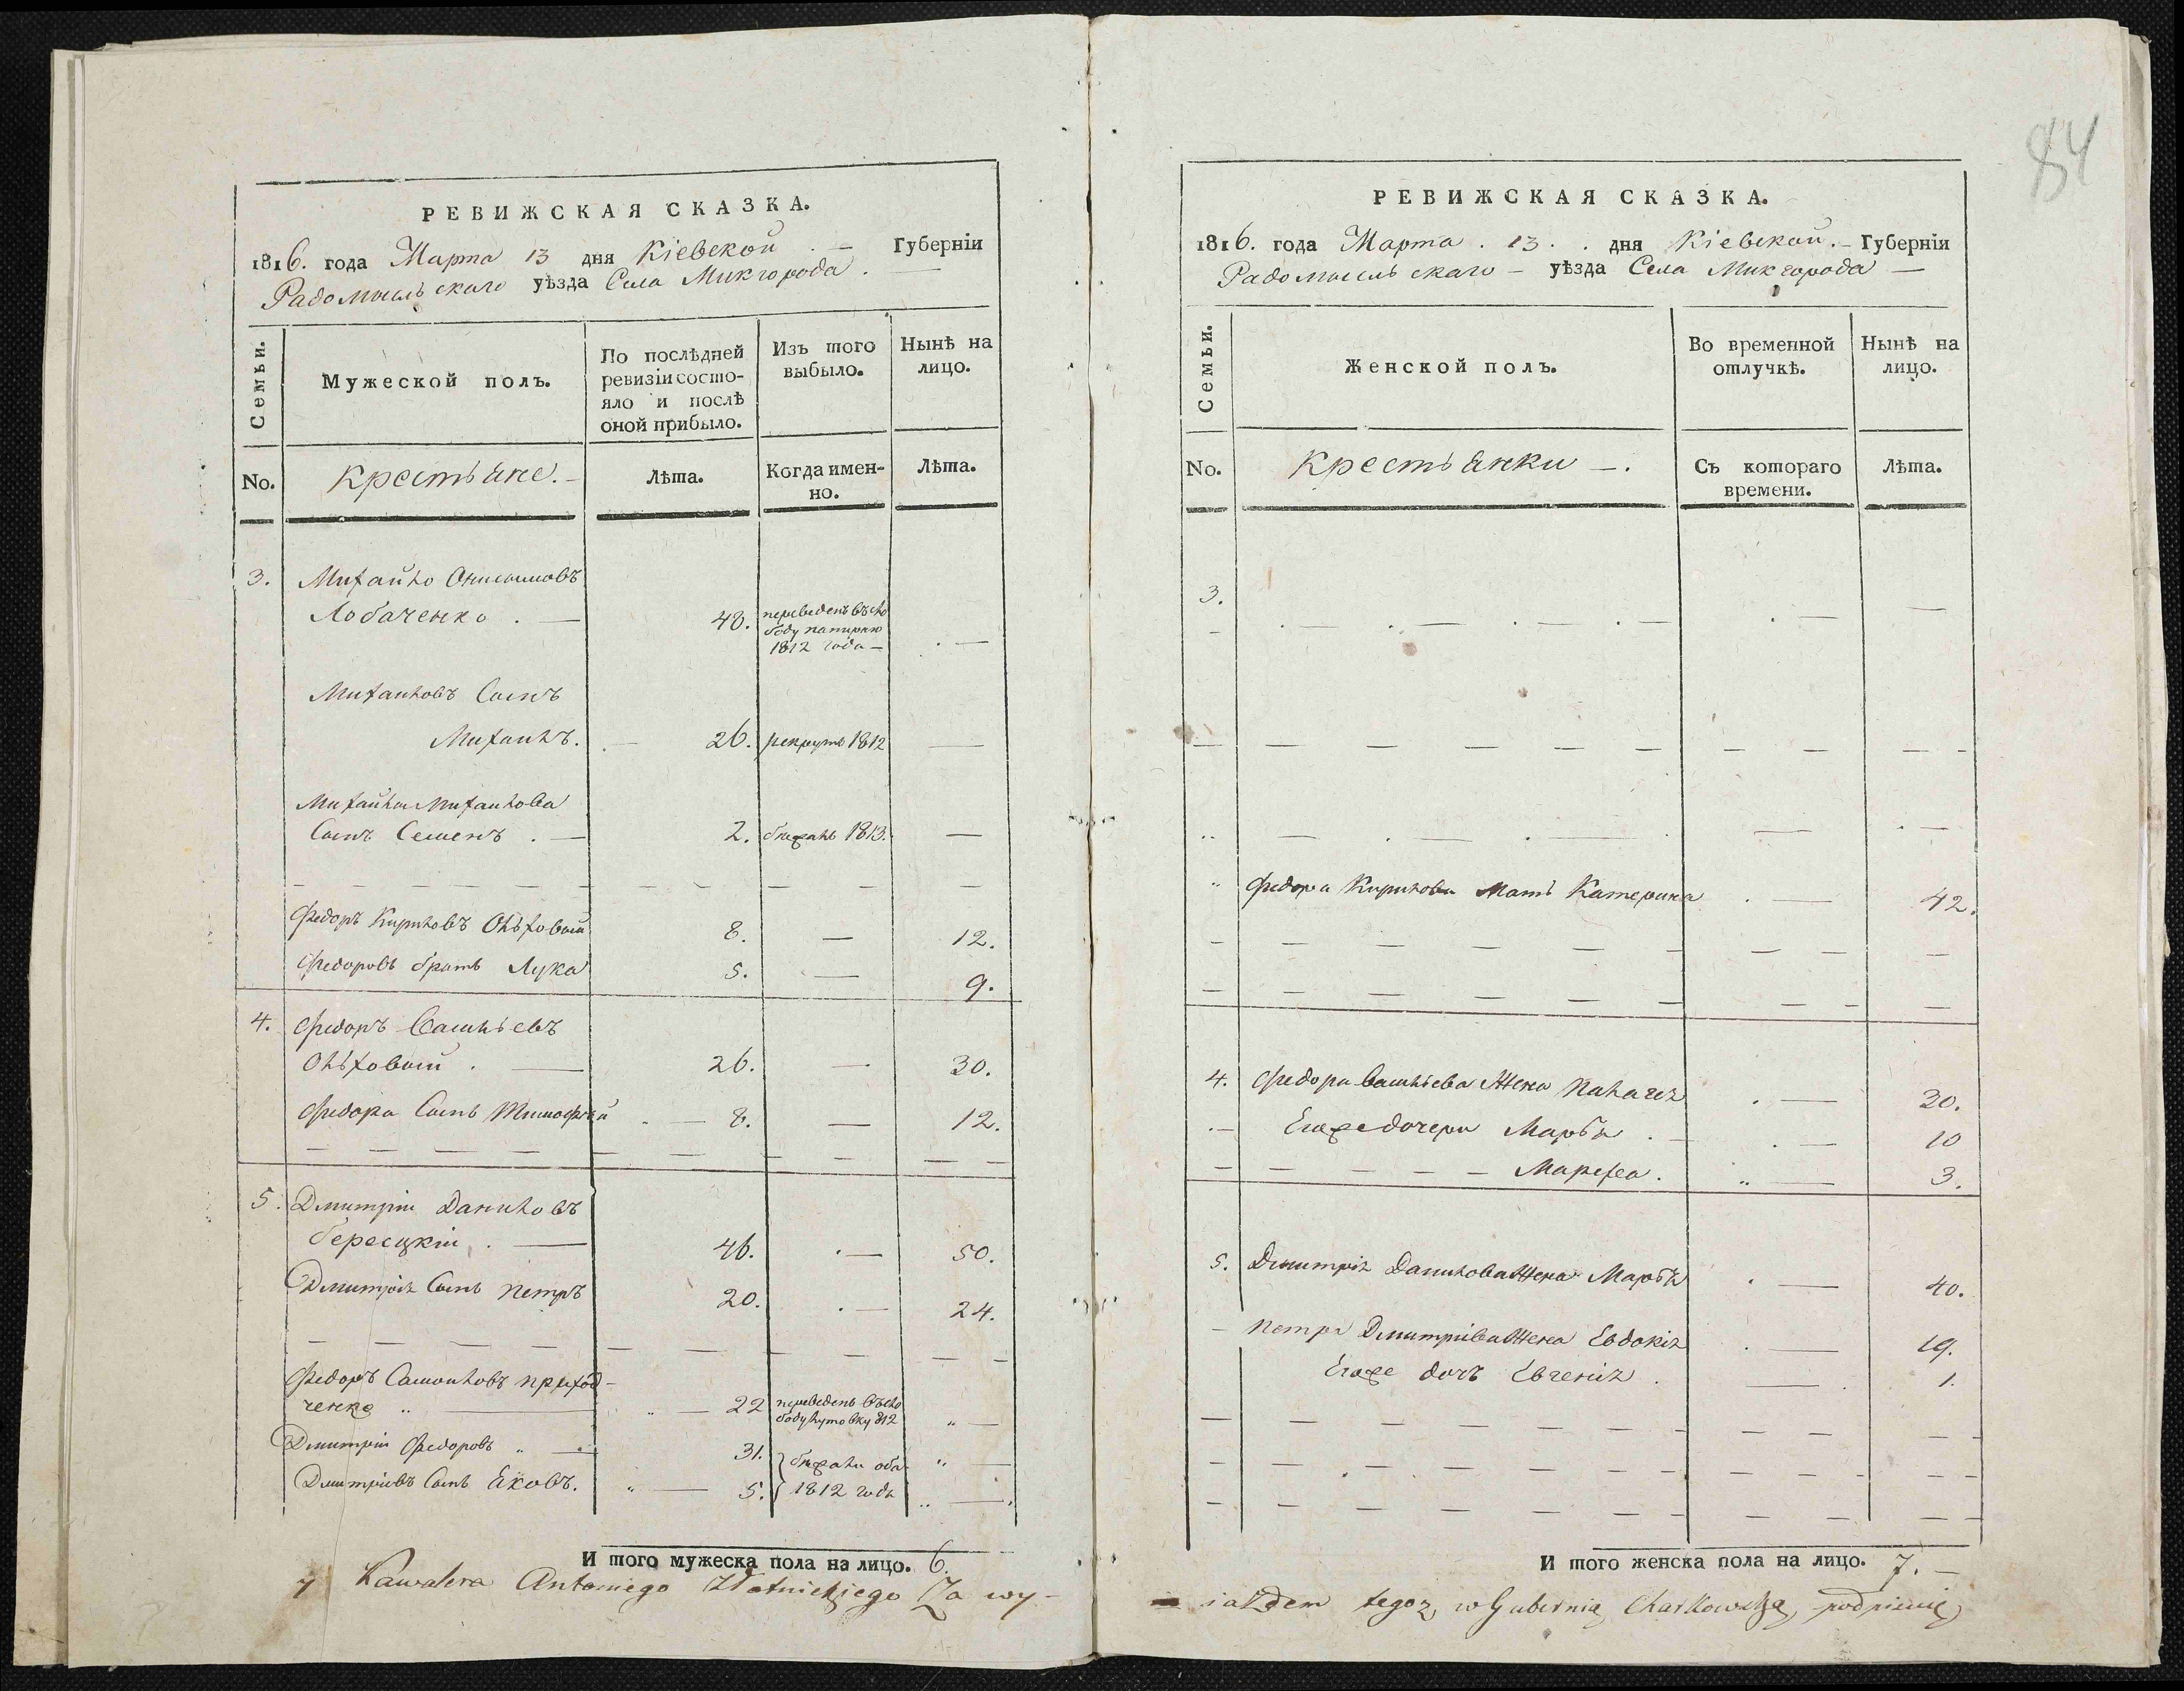 РЕВИЖСКАЯ СКАЗКА.
1816. года Марта 13 дня Кіевской . — Губерніи
Радомысльскаго уѣзда Села Микгорода . —
Семьи.
Мужеской полъ.
По послѣдней ревизіи состо-
яло и послѣ
оной прибыло.
Изъ того
выбыло.
Нынѣ на
лицо.
No.
Крестьяне. —
Лѣта.
Когда имен-
но.
Лѣта.
3. Михайло Онисимовъ
Лобаченко . — 48. переведенъ въ сло
боду 
1812 года — . —
Михаиловъ Сынъ
Михаилъ. . — 26. рекрутъ 1812 —
Михайла Михаилова
Сынъ Семенъ . — 2. бѣжалъ 1813. —
Федоръ Кириловъ Олѣховый 8. — 12.
Федоровъ братъ Лука 5. — 9.
4. Федоръ Васильевъ
Олѣховый . — 26. — 30.
Федора Сынъ Тимофѣй . — 8. — 12.
5. Дмитрій Даниловъ
Бересцкій . — 46. . — 50.
Дмитрія Сынъ Петръ 20. . — 24.
Федоръ Самоиловъ Приход-
ченко „ — „ — 22 переведенъ въ сло
боду 812 „ —
Дмитрій Федоровъ „ — 31. бѣжали оба „ —
Дмитріевъ Сынъ Яковъ. „ — 5. 1812 года „ —
И того мужеска пола на лицо. 6.
y Kawalera Antoniego Złotnickiego Za wy-
84
РЕВИЖСКАЯ СКАЗКА.
1816. года Марта . 13 . . дня Кіевской. — Губерніи
Радомысльскаго — уѣзда Села Микгорода —
Семьи.
Женской полъ.
Во временной
отлучкѣ.
Нынѣ на
лицо.
No.
Крестьянки — .
Съ котораго
времени.
Лѣта.
3.
„ Федора Кирилова Мать Катерина . — 42.
4. Федора Васильева Жена Палагея . — 30.
. — Егоже дочери Марѳа . — . — 10
Марфа . „ — 3.
5. Дмитрія Данилова Жена Марѳа . — 40.
— Петра Дмитріева Жена Евдокія . — 19.
Егоже дочь Евгенія . — . 1.
И того женска пола на лицо. 7. —
iazdem tegoż, w Gubernią Charkowską, podpisuię